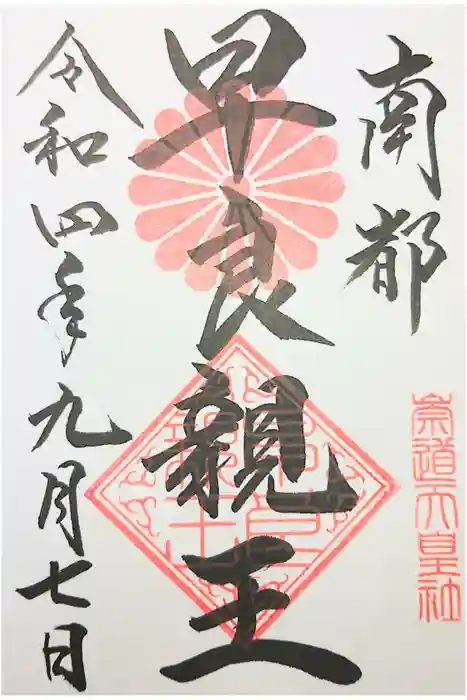 南都
崇道天皇社
早良親王
令和四年九月七日